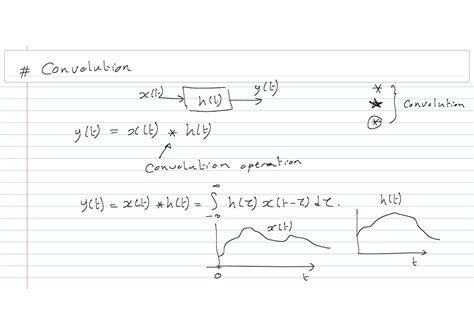 # Convolution
x(t) h(t) y(t)
* ★ ⊛ } Convolution
y(t) = x(t) * h(t)
Convolution operation
y(t) = x(t) * h(t) = ∫_{-∞}^{∞} h(τ) x(t-τ) dτ.
x(t)
0 t
h(t)
t